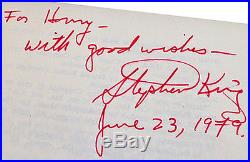 For Harry –
with good wishes –
Stephen King
June 23, 1979.